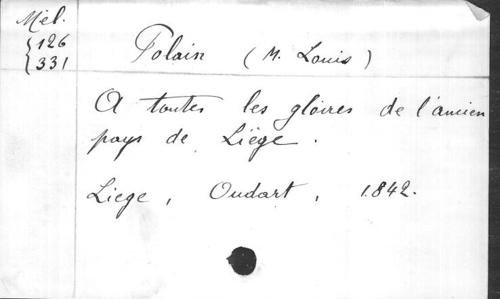 Mél.
{126
{331
Polain (M. Louis)
A toutes les gloires de l'ancien
pays de Liège.
Liege, Oudart, 1842.